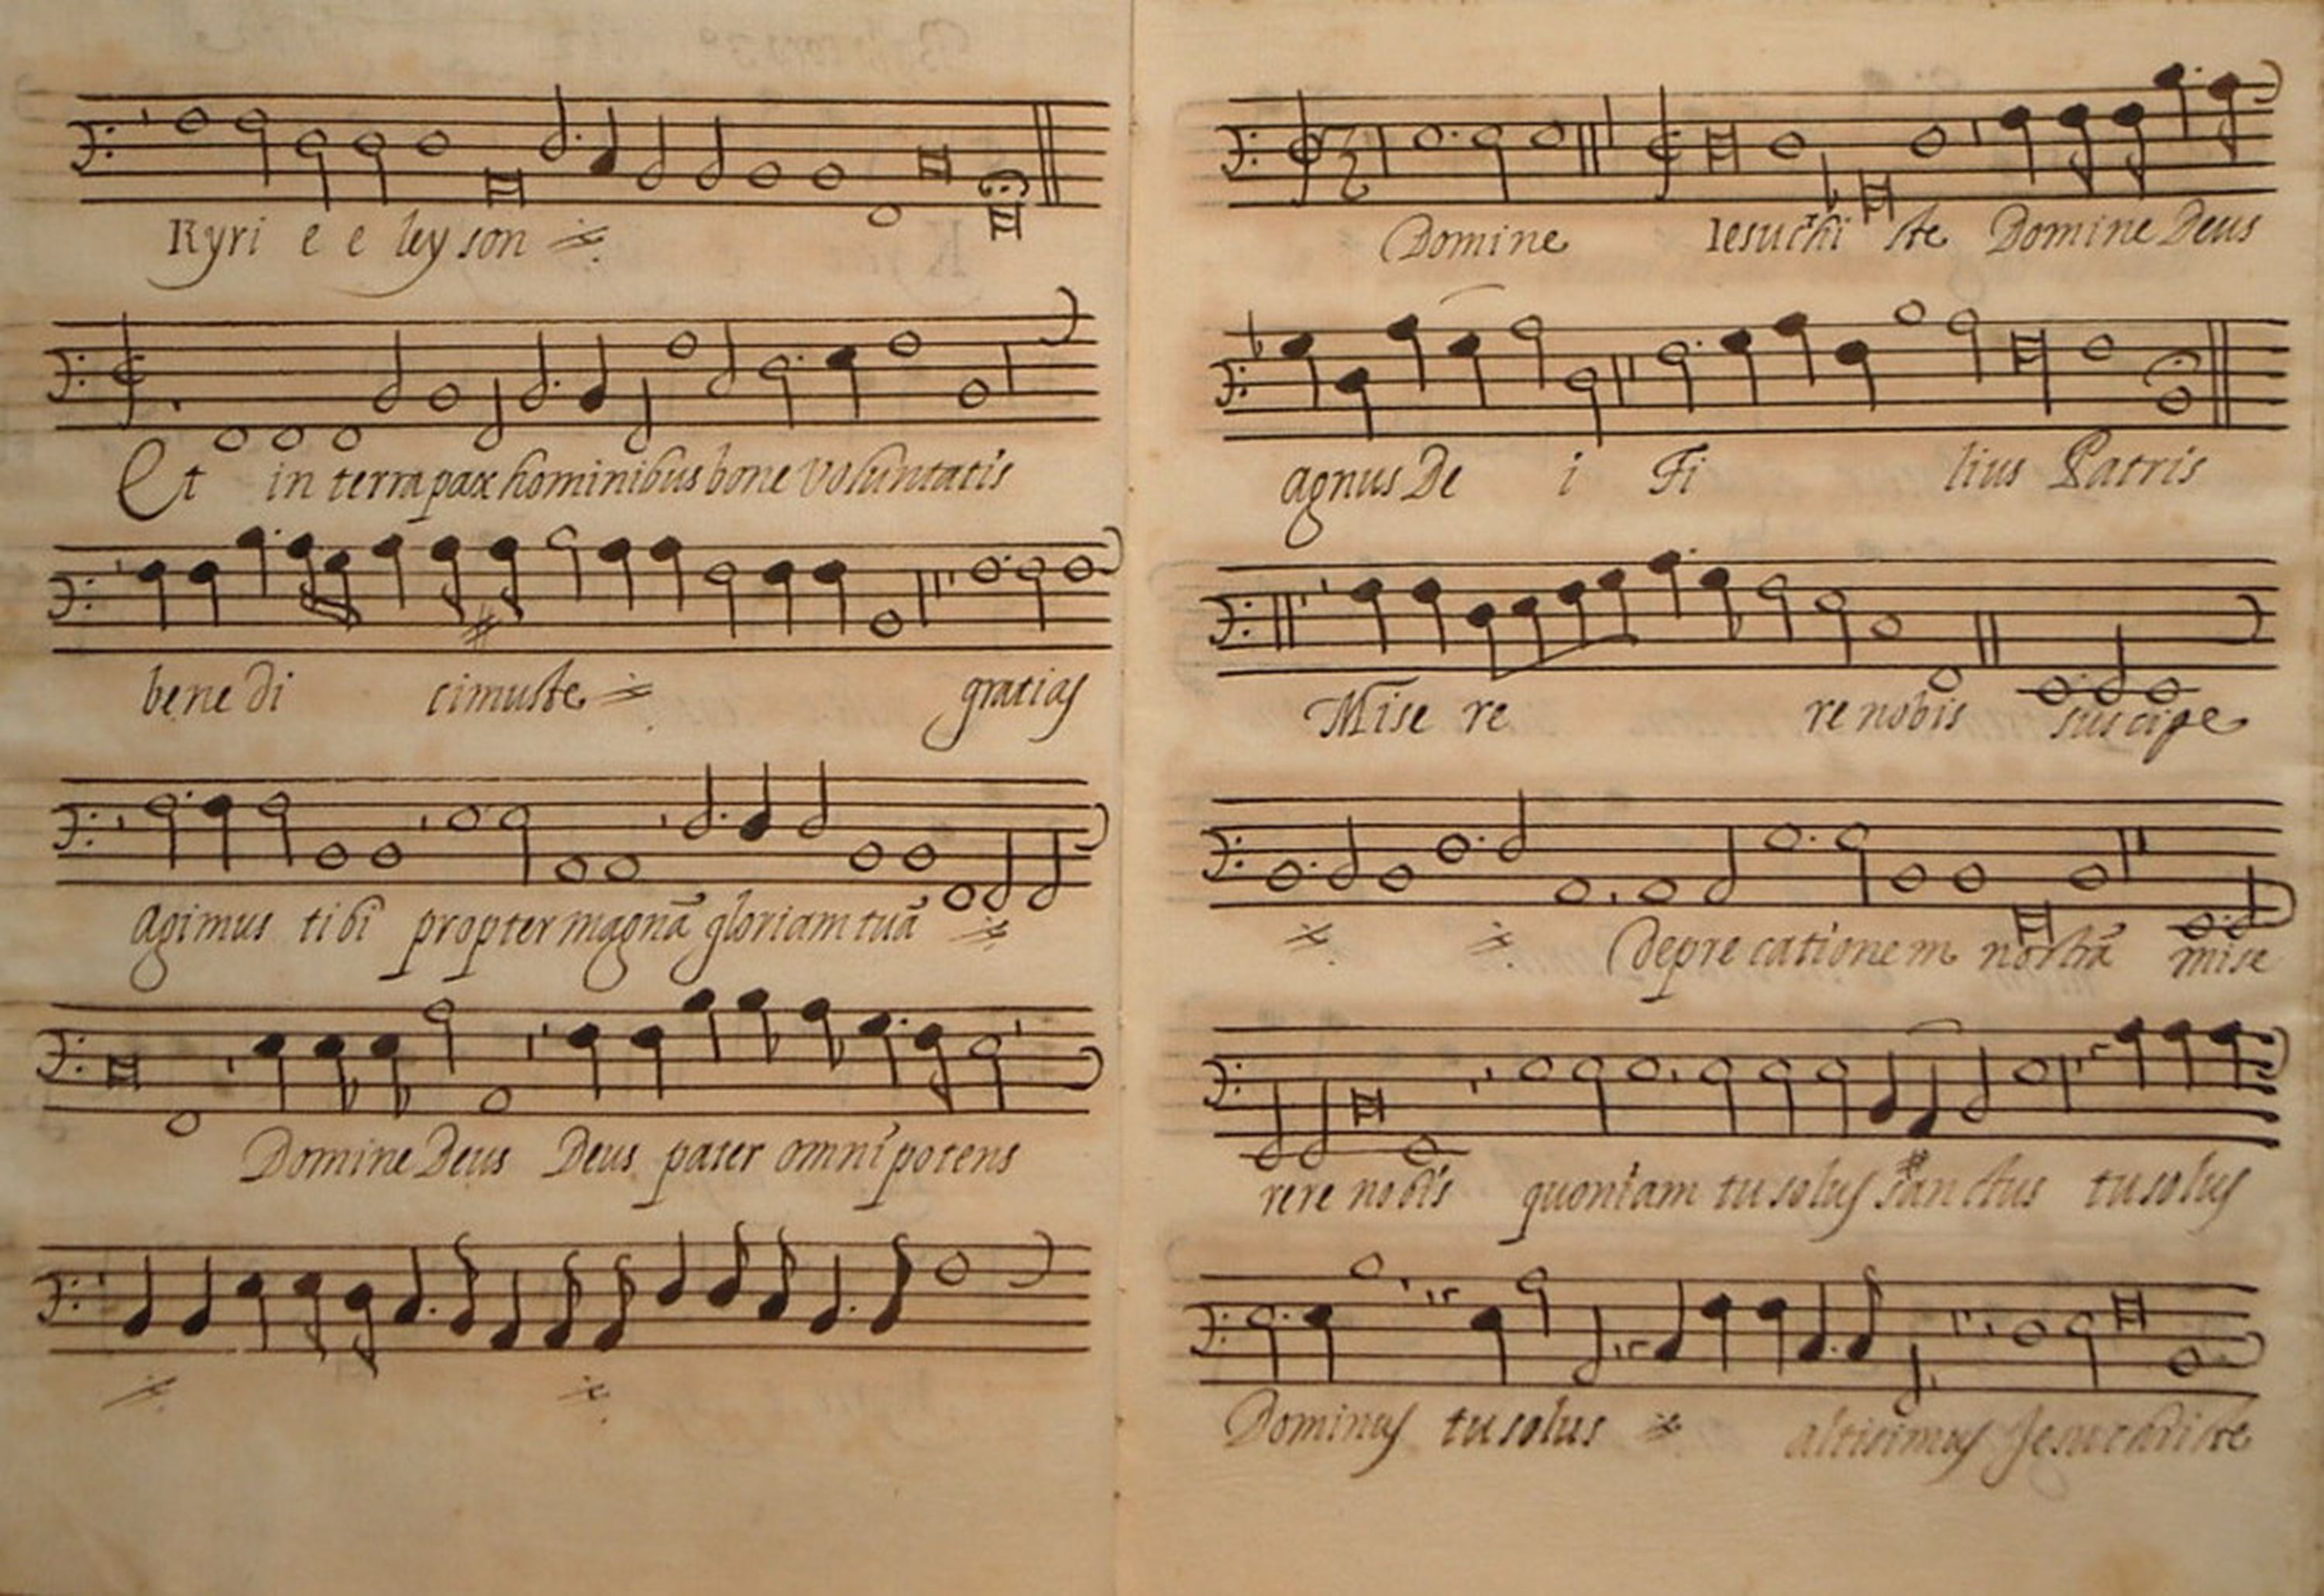 Kyri e e ley son
Et in terra pax hominibus bone Voluntatis
bene di cimus te gratias
Agimus tibi propter magnã gloriam tuã
Domine Deus Deus pater omnipotens
Domine Iesu chri ste Domine Deus
agnus De i Fi lius Patris
Mise re re nobis suscipe
depre cationem nostrã mise
rere nobis quoniam tu solus san ctus tu solus
Dominus tu solus altissimus Jesu christe